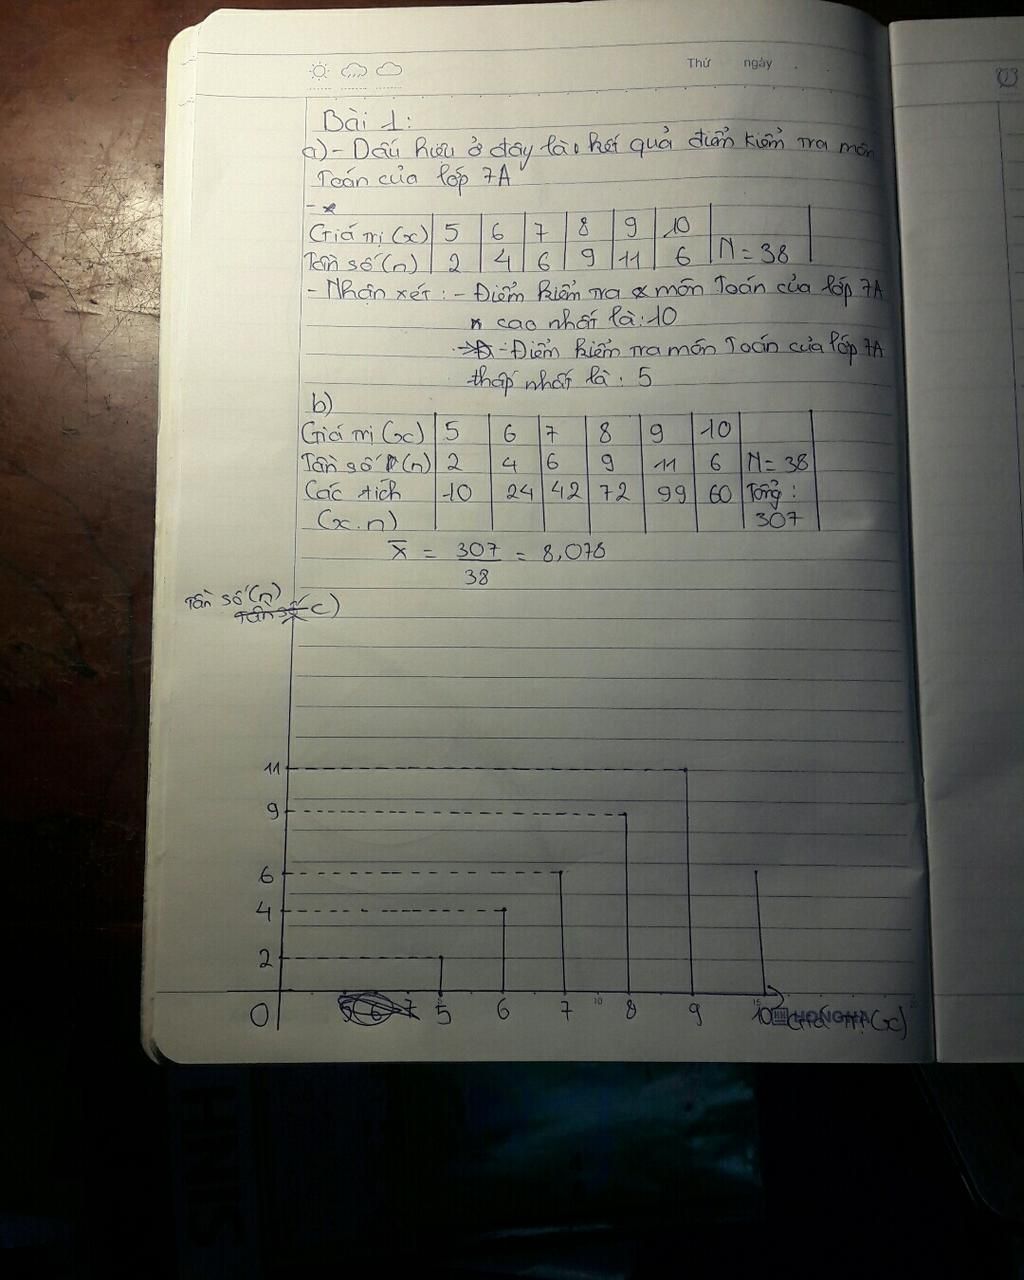 Thứ ngày
Bài 1:
a) - Dấu hiệu ở đây là: kết quả điểm kiểm tra môn
Toán của lớp 7A
-
Giá trị (x) 5 6 7 8 9 10
Tần số (n) 2 4 6 9 11 6 N = 38
- Nhận xét: - Điểm kiểm tra môn Toán của lớp 7A
cao nhất là: 10
- Điểm kiểm tra môn Toán của lớp 7A
thấp nhất là: 5
b)
Giá trị (x) 5 6 7 8 9 10
Tần số (n) 2 4 6 9 11 6 N = 38
Các tích 10 24 42 72 99 60 Tổng:
(x.n) 307
X̄ = 307/38 = 8,078
Tần số (n)
Tần số c)
11
9
6
4
2
0 5 6 7 8 9 10 Giá trị (x)
HONG HA
HNIS